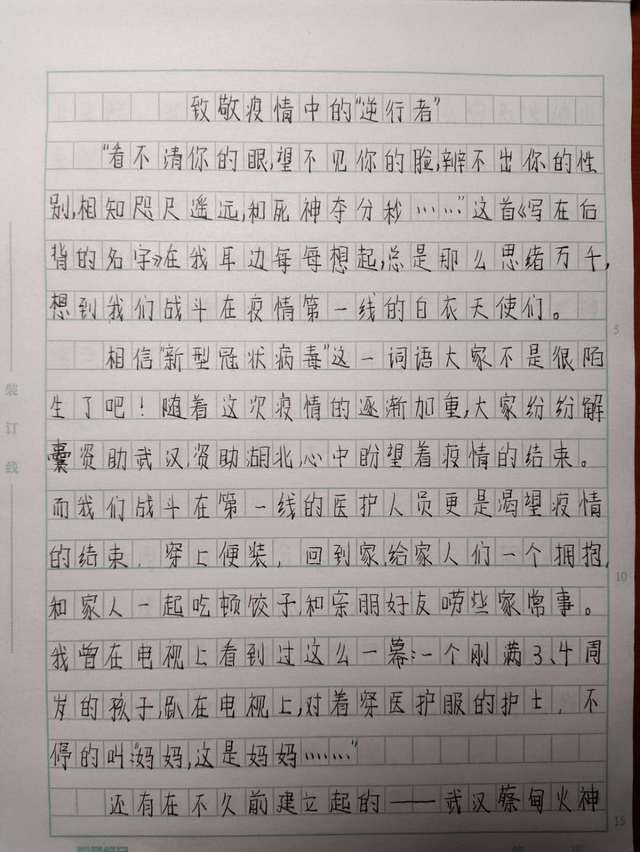 致敬疫情中的“逆行者”
“看不清你的眼,望不见你的脸,辨不出你的性
别,相知咫尺遥远,和死神夺分秒……”这首《写在后
背的名字》在我耳边每每想起,总是那么思绪万千,
想到我们战斗在疫情第一线的白衣天使们。
相信“新型冠状病毒”这一词语大家不是很陌
生了吧！随着这次疫情的逐渐加重,大家纷纷解
囊资助武汉,资助湖北,心中盼望着疫情的结束。
而我们战斗在第一线的医护人员更是渴望疫情
的结束，穿上便装，回到家,给家人们一个拥抱,
和家人一起吃顿饺子,和亲朋好友唠些家常事。
我曾在电视上看到过这么一幕:一个刚满3、4周
岁的孩子,趴在电视上,对着穿医护服的护士，不
停的叫“妈妈,这是妈妈……”
还有在不久前建立起的——武汉蔡甸火神
装
订
线
5
10
15